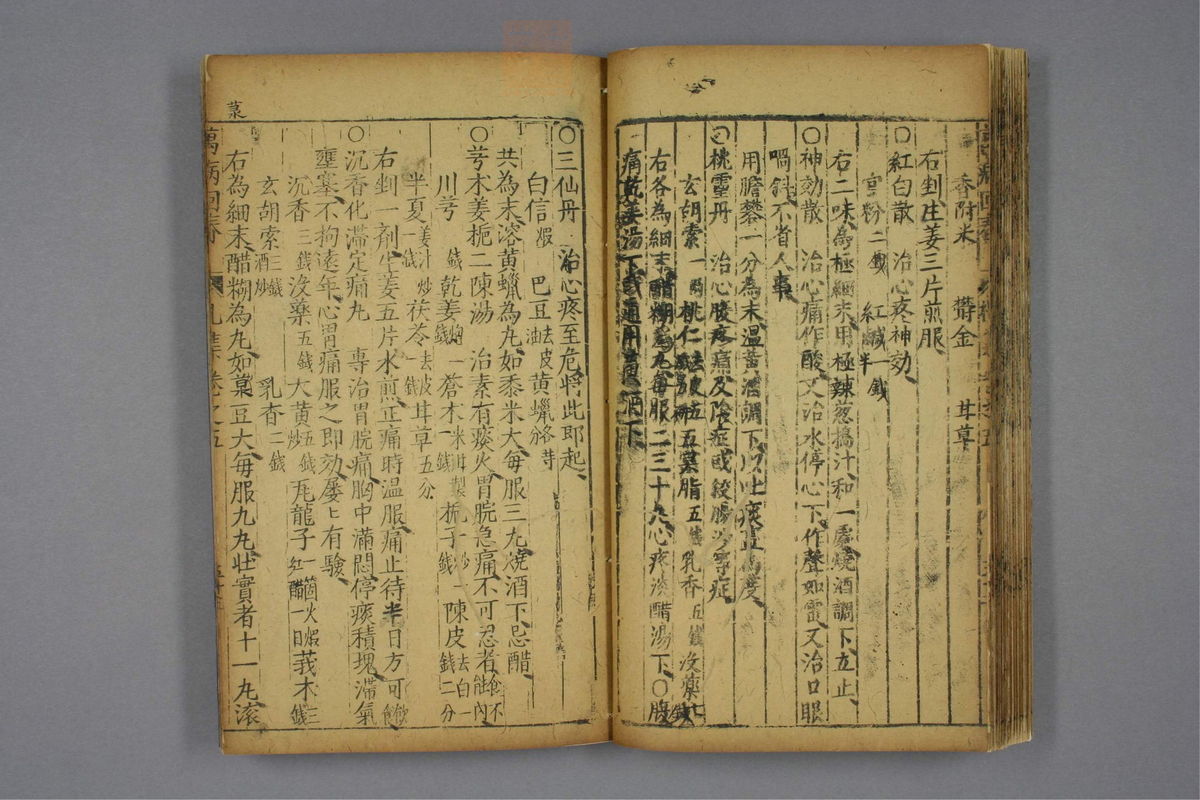 香附米 欝金 甘草
右剉生姜三片煎服
○紅白散 治心疼神効
官粉二錢 紅鹹一錢半
右二味為極細末用極辣葱搗汁和一處燒酒調下立止
○神効散 治心痛作酸又治水停心下作聲如雷又治口眼
喎斜不省人事
用膽礬一分為末温黄酒調下以吐痰盡為度
○桃靈丹 治心腹疼痛及陰症或絞腸沙等症
玄胡索一兩桃仁去皮五五靈脂五錢乳香五錢没藥七錢
右各為細末醋糊為丸每服二三十丸心疼淡醋湯下○腹
痛乾姜湯下或通用黄酒下
○三仙丹 治心疼至危將此即起
白信煅 巴豆去皮油黄蠟各等分
共為末溶黄蠟為丸如黍米大每服三丸燒酒下忌醋
○芎术姜梔二陳湯 治素有痰火胃脘急痛不可忍者飲不能內
川芎一錢乾姜炮一錢蒼术米泔製一錢梔子炒一錢陳皮去白一錢二分
半夏姜汁炒一錢茯苓去皮一錢甘草五分
右剉一劑生姜五片水煎正痛時温服痛止待半日方可飲食
○沉香化滯定痛丸 專治胃脘痛胸中滿悶停痰積塊滯氣
壅塞不拘遠年心胃痛服之即効屢匕有驗
沉香三錢没藥五錢大黄五錢炒瓦龍子一箇火煅紅醋一日莪术三錢
玄胡索三錢酒炒 乳香二錢
右為細末醋糊為丸如菉豆大每服九丸壯實者十一丸滚
菉
萬病回春 卷之五